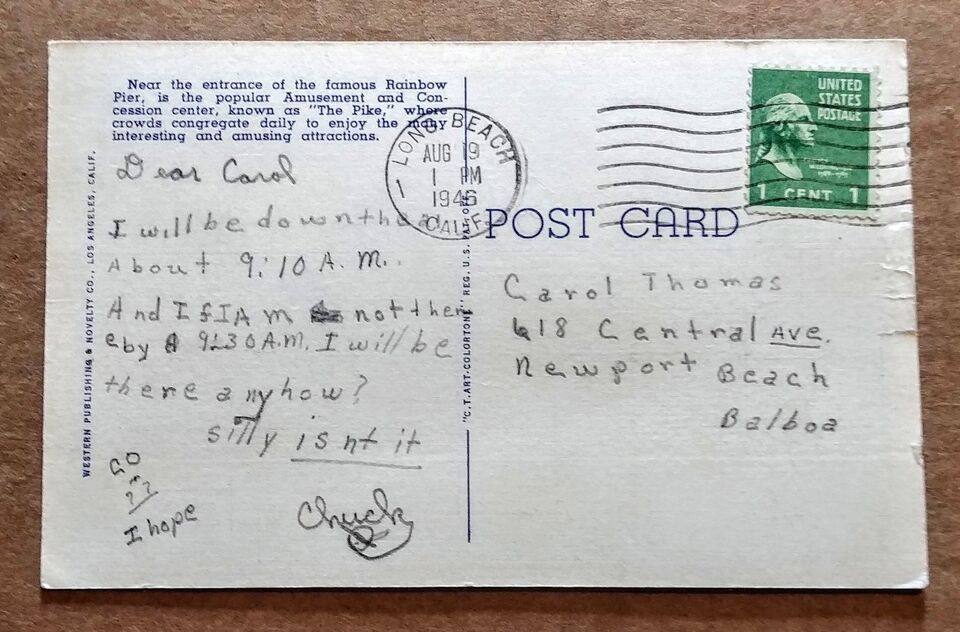 Near the entrance of the famous Rainbow
Pier, is the popular Amusement and Con-
cession center, known as "The Pike," where
crowds congregate daily to enjoy the many
interesting and amusing attractions.
WESTERN PUBLISHING & NOVELTY CO., LOS ANGELES, CALIF.
Dear Carol
I will be down
About 9:10 A.M..
And If I Am not ther
e by 9:30 A.M. I will be
there anyhow?
silly isnt it
GO
??
I hope
Chuck
"C.T. ART-COLORTONE" REG. U.S. PAT. OFF.
LONG BEACH
AUG 19
1 PM
1946
CALIF.
1
POST CARD
UNITED
STATES
POSTAGE
1 CENT 1
Carol Thomas
618 Central Ave.
Newport Beach
Balboa